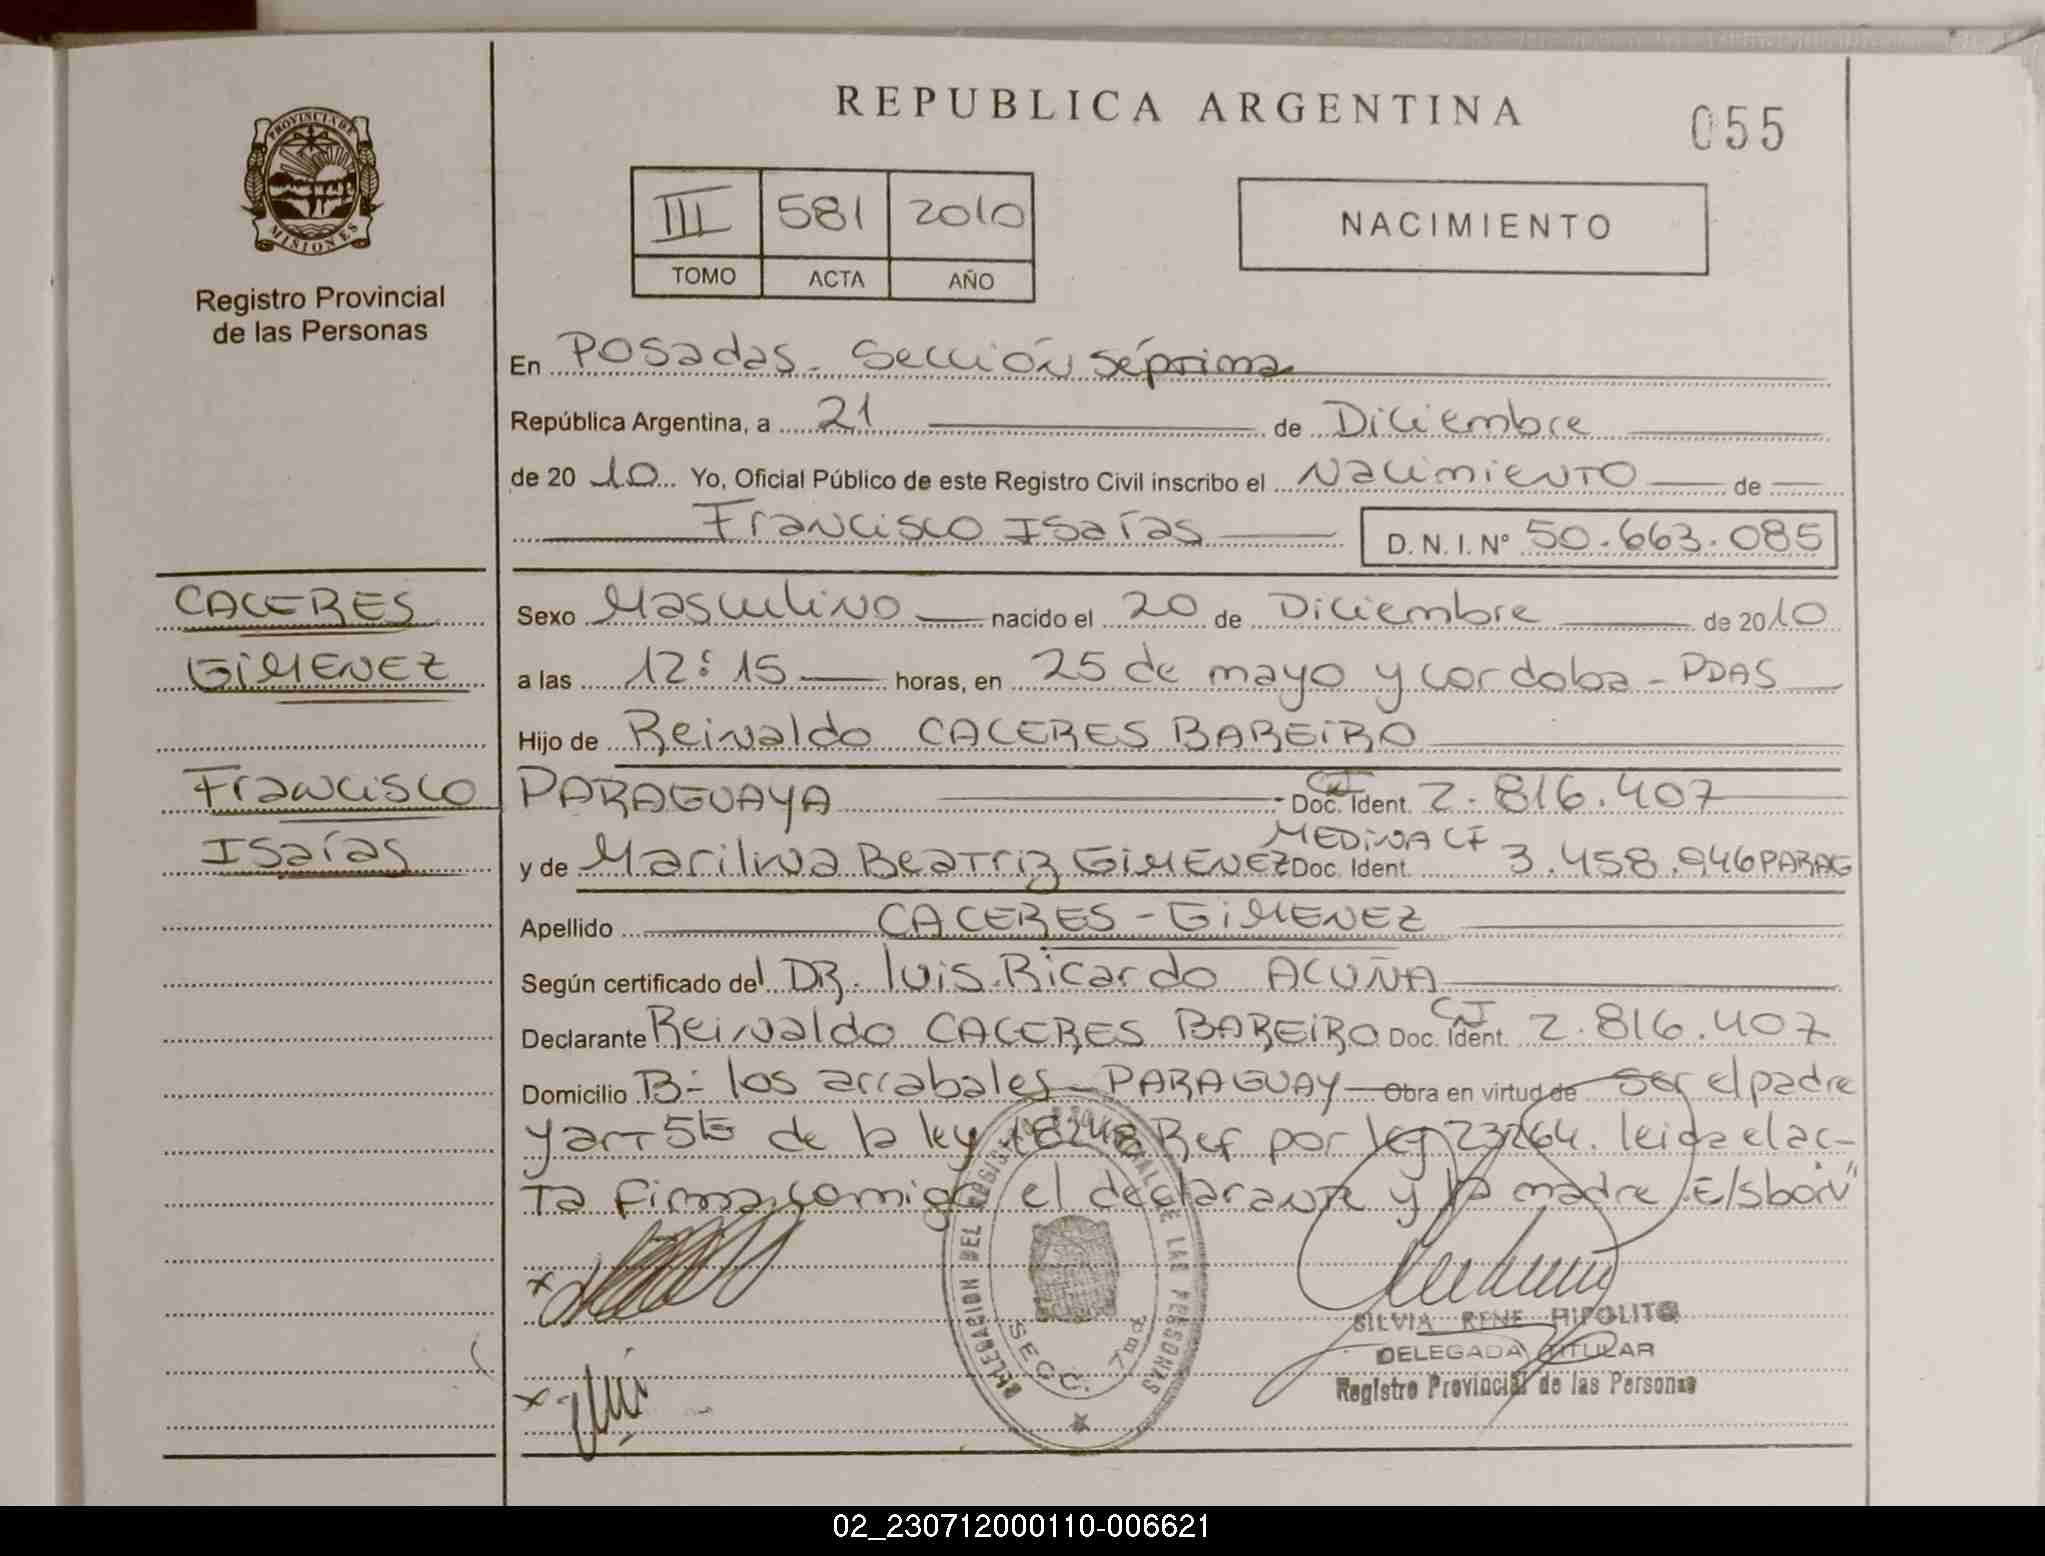 REPUBLICA ARGENTINA
055
PROVINCIA DE
MISIONES
Registro Provincial
de las Personas
III 581 2010
TOMO ACTA AÑO
NACIMIENTO
En Posadas - Sección Séptima
República Argentina, a 21 de Diciembre
de 20 10 Yo, Oficial Público de este Registro Civil inscribo el Nacimiento de
Francisco Isaías D.N.I. Nº 50.663.085
CACERES
GIMENEZ
Francisco
Isaías
Sexo Masculino nacido el 20 de Diciembre de 2010
a las 12:15 horas, en 25 de mayo y cordoba - PDAS
Hijo de Reinaldo CACERES BAREIRO
PARAGUAYA CI Doc. Ident. 2.816.407
y de Marilina Beatriz GIMENEZ MEDINA CI Doc. Ident. 3.458.946 PARAG
Apellido CACERES - GIMENEZ
Según certificado del DR. luis Ricardo ACUÑA
Declarante Reinaldo CACERES BAREIRO CI Doc. Ident. 2.816.407
Domicilio B- los arrabales - PARAGUAY - Obra en virtud de ser el padre
y art 5to de la ley 18248 Ref por ley 23264. leida el ac-
ta firma comigo el declarante y la madre
DELEGACION DEL REGISTRO PROVINCIAL DE LAS PERSONAS
SECC. 7ma
SILVIA RENE HIPOLITO
DELEGADA TITULAR
Registro Provincial de las Personas
02_230712000110-006621